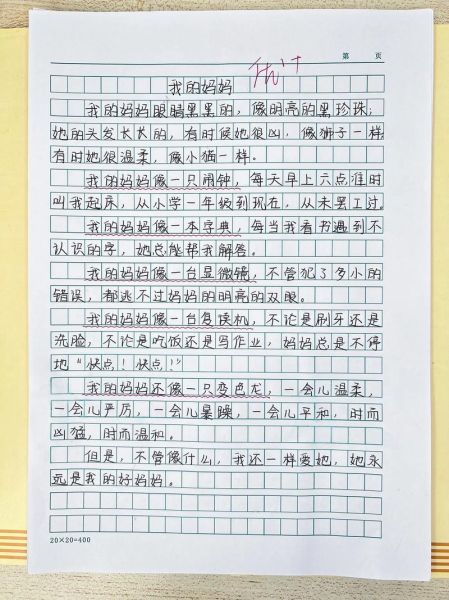 第 页
优+
我的妈妈
我的妈妈眼睛黑黑的，像明亮的黑珍珠；
她的头发长长的，有时候她很凶，像狮子一样
有时她很温柔，像小猫一样。
我的妈妈像一只闹钟，每天早上六点准时
叫我起床，从小学一年级到现在，从未罢工过。
我的妈妈像一本字典，每当我看书遇到不
认识的字，她总能帮我解答。
我的妈妈像一台显微镜，不管犯了多小的
错误，都逃不过妈妈的明亮的双眼。
我的妈妈像一台复读机，不论是刷牙还是
洗脸，不论是吃饭还是写作业，妈妈总是不停
地“快点！快点！”
我的妈妈还像一只变色龙，一会儿温柔，
一会儿严厉，一会儿暴躁，一会儿平和，时而
凶猛，时而温和。
但是，不管像什么，我还一样爱她，她永
远是我的好妈妈。
20×20=400